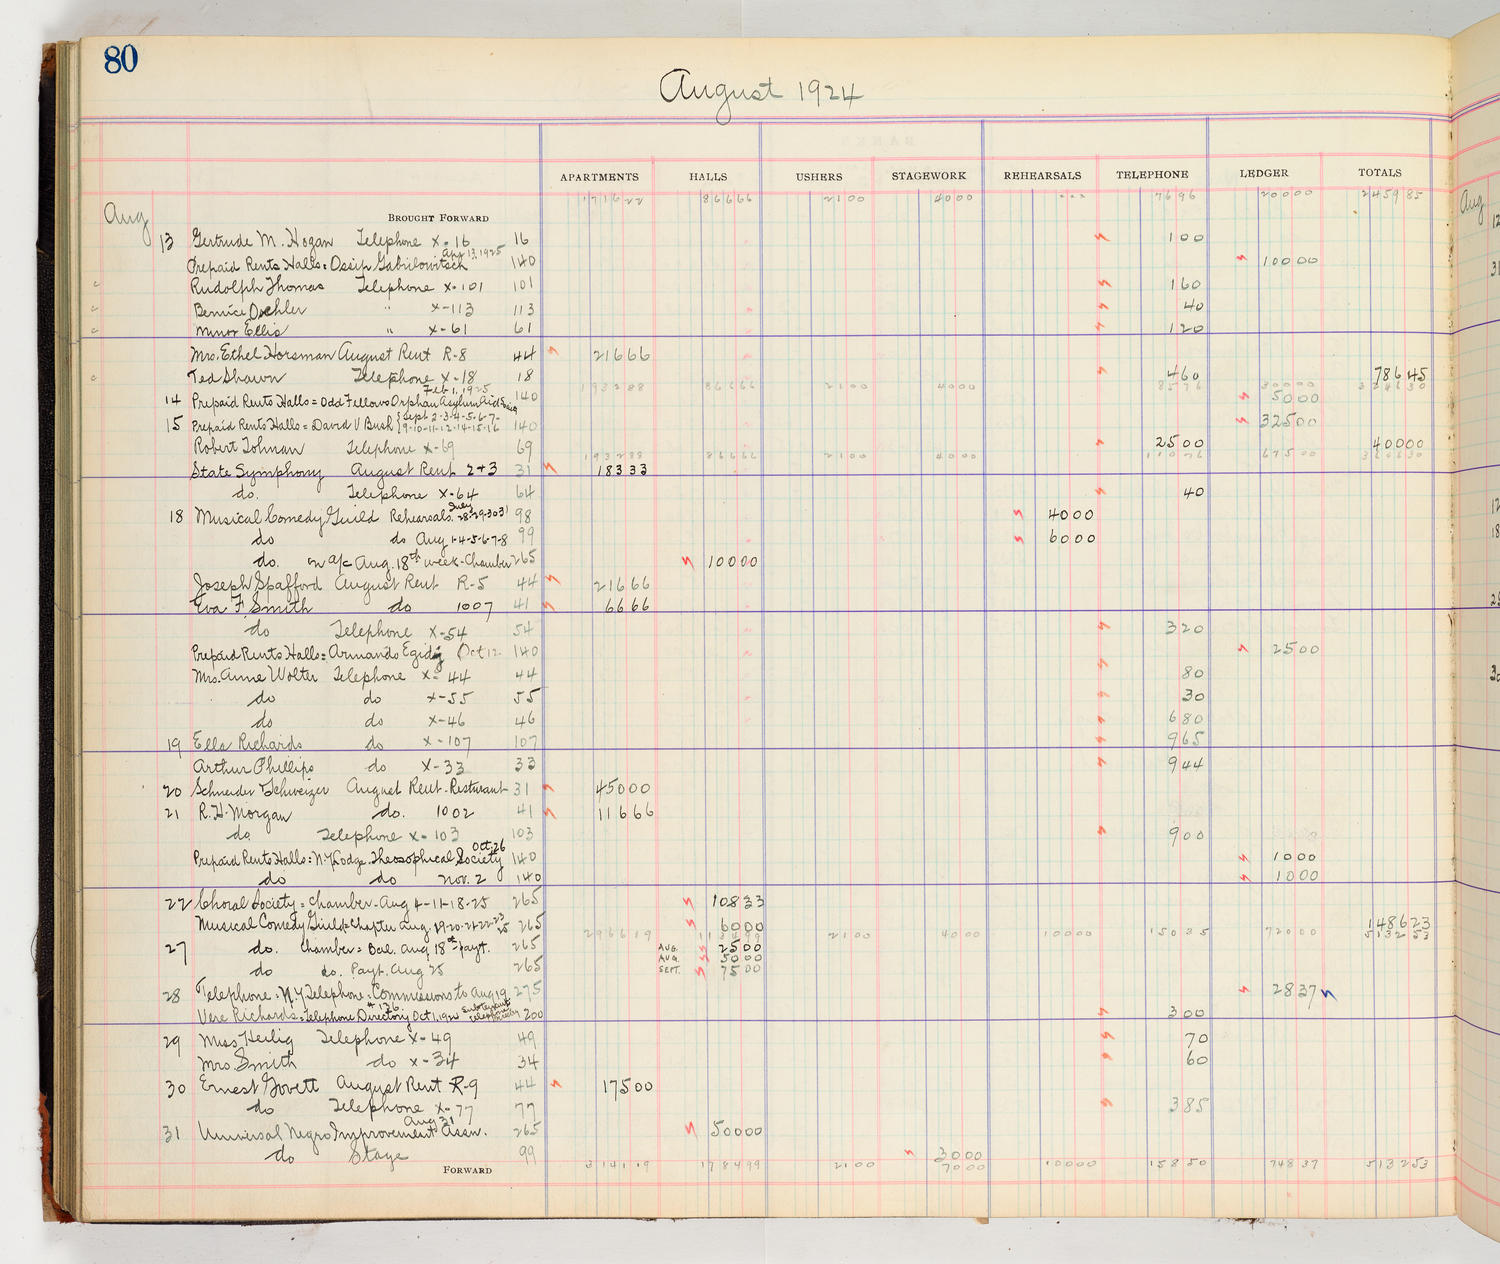 80
August 1924
APARTMENTS HALLS USHERS STAGEWORK REHEARSALS TELEPHONE LEDGER TOTALS
171622 86666 2100 4000 7696 20000 245985
Aug BROUGHT FORWARD
13 Gertrude M. Hogan Telephone X-16 16 100
Prepaid Rents Halls: Ossip Gabrilowitsch Apr 13, 1925 140 10000
Rudolph Thomas Telephone X-101 101 160
Bernice Oechler " X-113 113 40
Minor Ellis " X-61 61 120
Mrs. Ethel Horsman August Rent R-8 44 21666
Ted Shawn Telephone X-18 18 460 78645
193288 86666 2100 4000 8576 30000 324630
14 Prepaid Rents Halls = Odd Fellows Orphan Asylum Feb 1, 1925 140 5000
15 Prepaid Rents Halls = David V Bush {Sept 2-3-4-5-6-7- 9-10-11-12-14-15-16 140 32500
Robert Tohman Telephone X-69 69 2500 40000
193288 86666 2100 4000 11076 67500 364630
State Symphony August Rent 2+3 31 18333
do. Telephone X-64 64 40
18 Musical Comedy Guild Rehearsals. July 28-29-30-31 98 4000
do do Aug 1-4-5-6-7-8 99 6000
do. on a/c Aug. 18th week-Chamber 265 10000
Joseph Spafford August Rent R-5 44 21666
Eva F. Smith do 1007 41 6666
do Telephone X-54 54 320
Prepaid Rents Halls = Armando Egidy Oct 12- 140 2500
Mrs. Anne Wolter Telephone X-44 44 80
do do X-55 55 30
do do X-46 46 680
19 Ella Richards do X-107 107 965
Arthur Phillips do X-33 33 944
20 Schneider Schweizer August Rent-Resturant 31 45000
21 R.H. Morgan do. 1002 41 11666
do. Telephone X-103 103 900
Prepaid Rents Halls: N.Y. Lodge. Theosophical Society Oct. 26 140 1000
do do Nov. 2 140 1000
22 Choral Society = Chamber-Aug 4-11-18-25 265 10833
Musical Comedy Guild = Chapter Aug. 19-20-21-22-23 25 265 6000 148623
296619 2100 4000 10000 15035 72000 513253
27 do. Chamber = Bal. Aug 18th-payt. 265 AUG. 2500
AUG. 5000
do do. Payt. Aug 25 265 SEPT. 7500
28 Telephone: N.Y. Telephone: Commissions to Aug 19 275 2837
Vere Richards = Telephone Directory Oct 1, 192 # 136 Subtenant Telephone 200 300
29 Miss Heilig Telephone X-49 49 70
Mrs. Smith do X-34 34 60
30 Ernest Govett August Rent R-9 44 17500
do Telephone X-77 77 385
31 Universal Negro Improvement Assn. Aug 31 265 50000
do Stage 99 3000
FORWARD 314119 178499 2100 7000 10000 15850 74837 513253
Aug